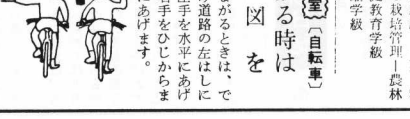 栽培管理―農林
教育学級
学級
室〔自転車〕
る時は
図を
がるときは、で
道路の左はしに
手を水平にあげ
手をひじからま
にあげます。